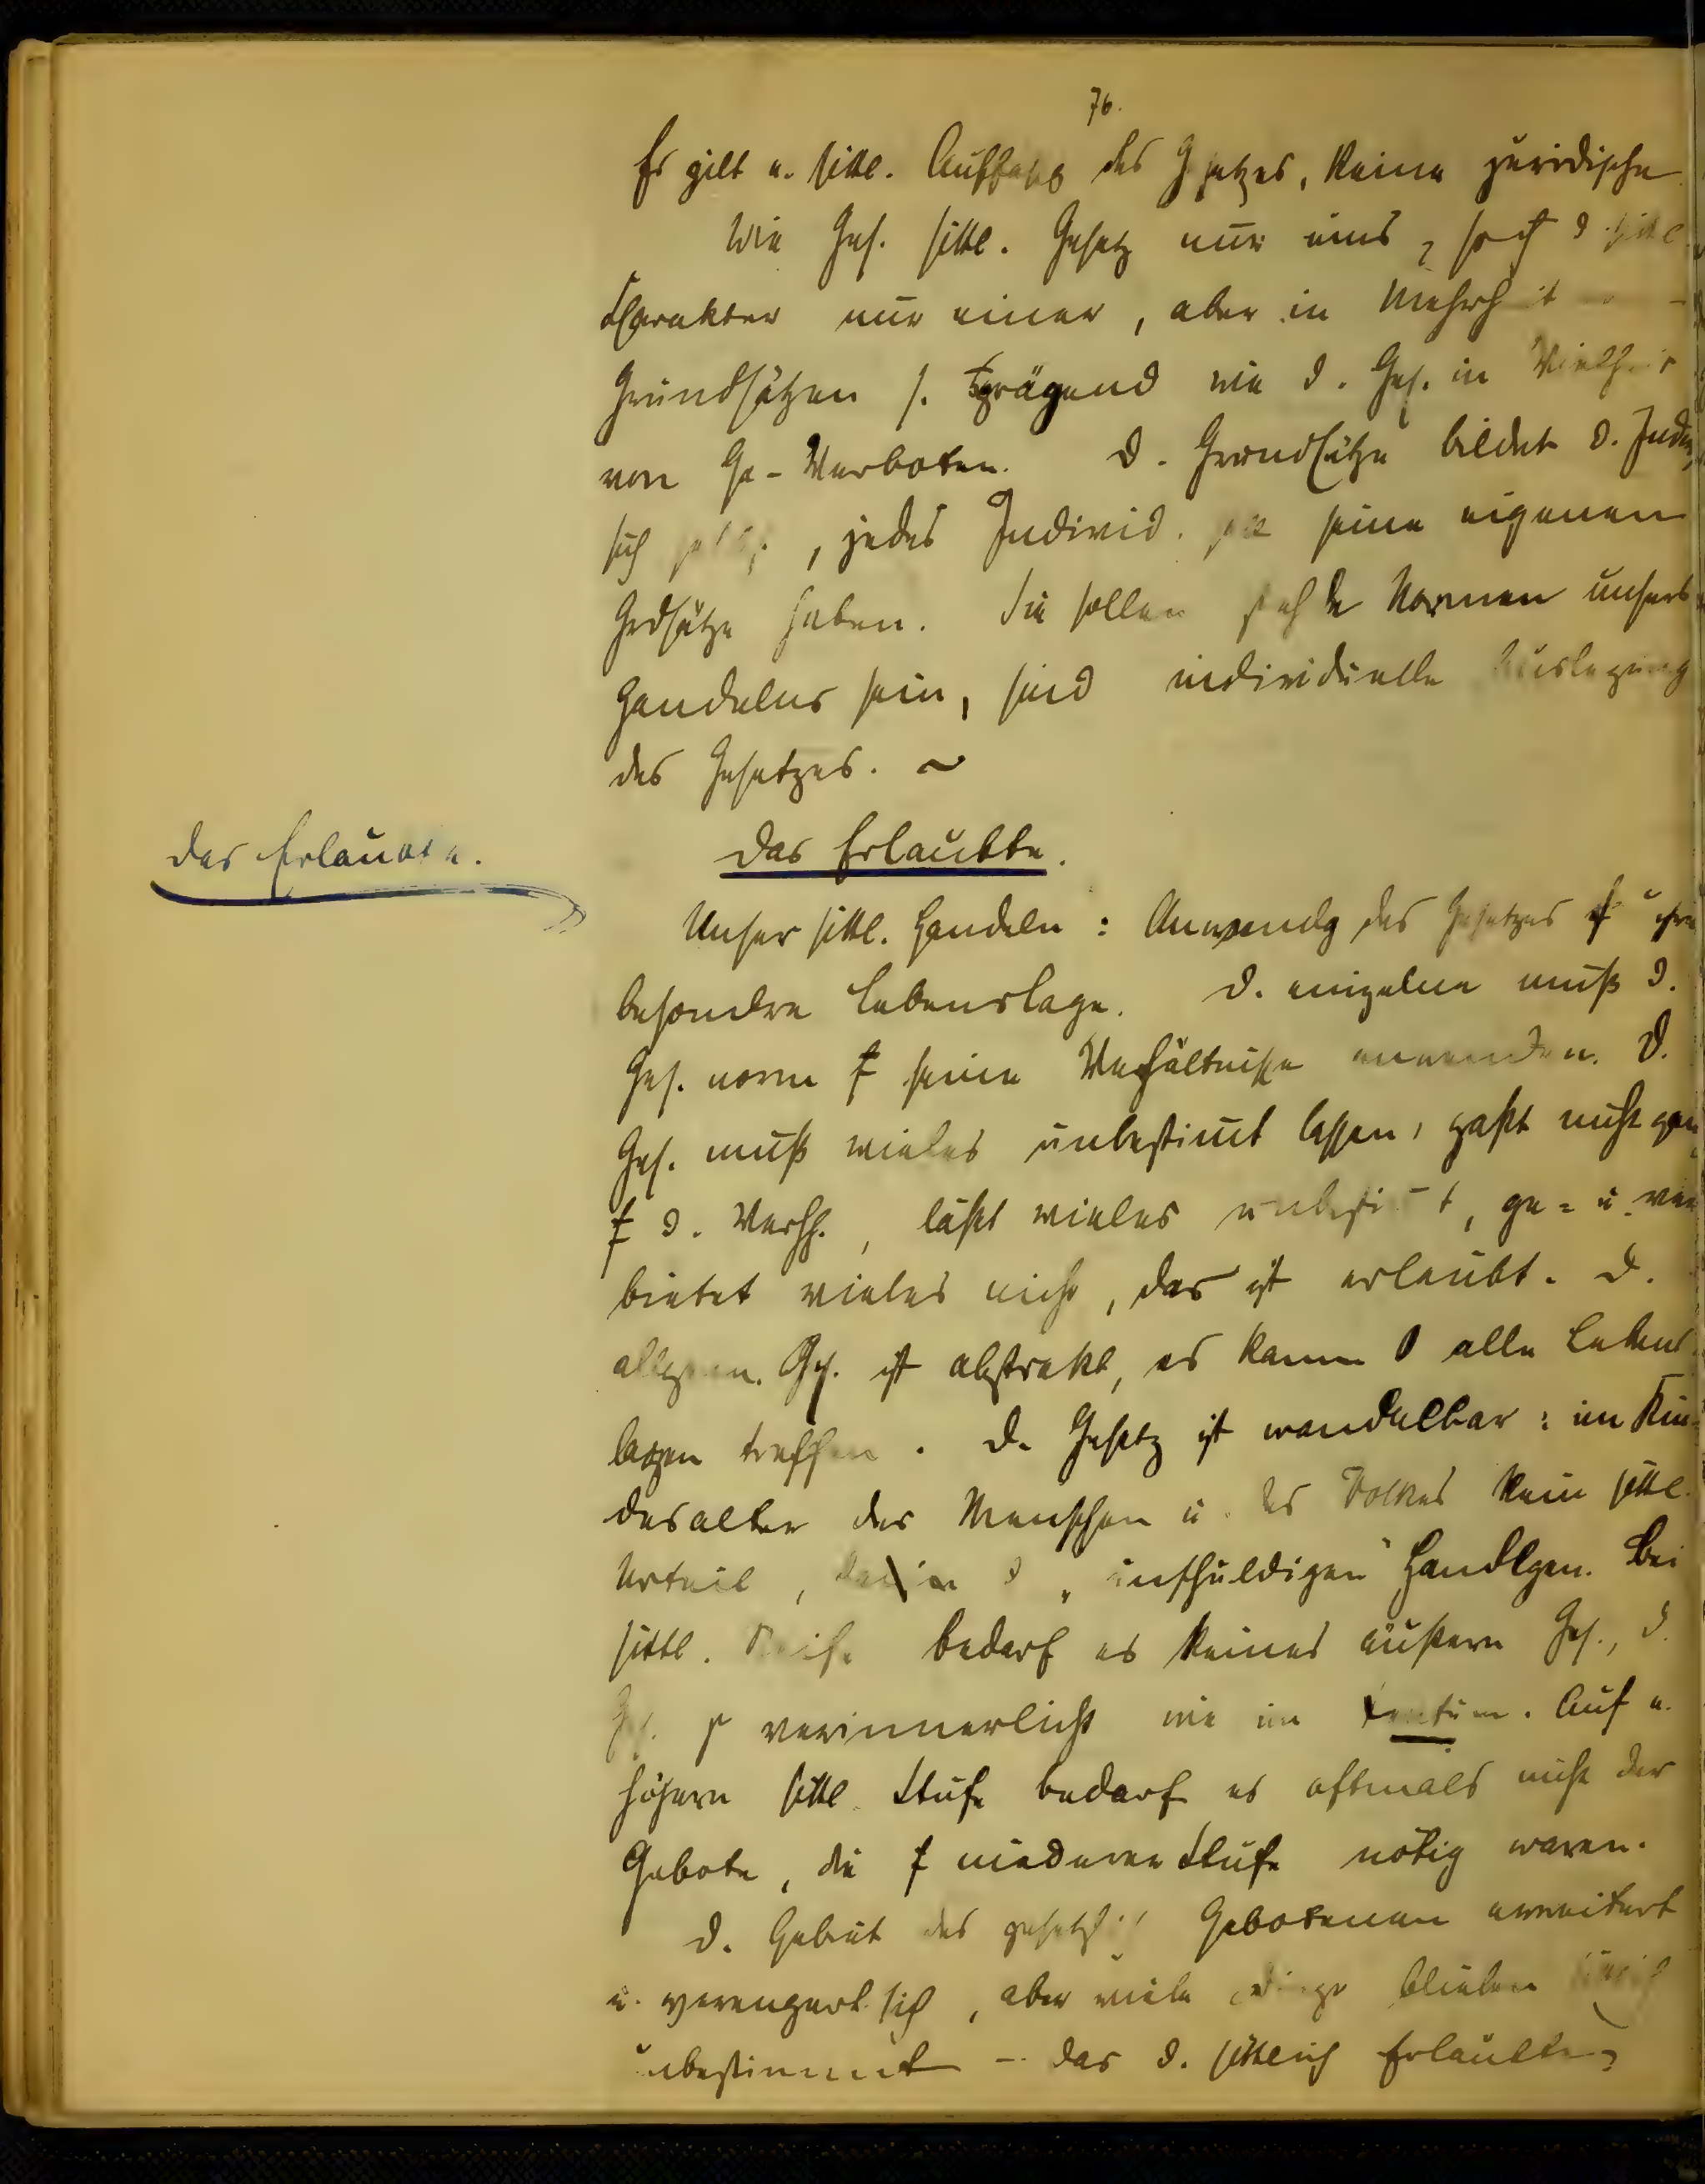 76.
Es gilt e. sittl. Auffassg des Gesetzes, keine juridische
Wie Ges. sittl. Gesetz nur eins, so ist d. sittl.
Charakter nur einer, aber in Mehrheit
Grundsätzen s. prägend wie d. Ges. in Vielheit
von Ge-Verboten. D. Grundsätze bildet d. Indiv.
sich selbst, jedes Individ. soll seine eigenen
Grdsätze haben. Sie sollen stehde Normen unsers
Handelns sein, sind individuelle Auslegung
des Gesetzes. ~
Das Erlaubte.
Das Erlaubte.
Unser sittl. Handeln: Anwendg des Gesetzes
besondre Lebenslage. D. einzelne muß d.
Ges. norm f seine Verhältnisse anwenden. D.
Ges. muß vieles unbestimt lassen, paßt nicht ganz
f d. Verhh., läßt vieles unbestimt, ge- u. ver
bietet vieles nicht, das ist erlaubt. D.
allgem. Ges. ist abstrakt, es kann 0 alle Lebens
lagen treffen. D. Gesetz ist wandelbar: im Kin-
desalter des Menschen u. des Volkes kein sittl.
Urteil, d „unschuldigen" Handlgen. Bei
sittl. Reife bedarf es keines äußern Ges., d.
Ges. ist verinnerlicht wie im Xentum. Auf e.
höhern sittl. Stufe bedarf es oftmals nicht der
Gebote, die f niederer Stufe nötig waren.
D. Gebiet des gesetzlich Gebotenen erweitert
u. verengert sich, aber viele Dinge blieben
unbestimmt - das d. sittlich Erlaubte,